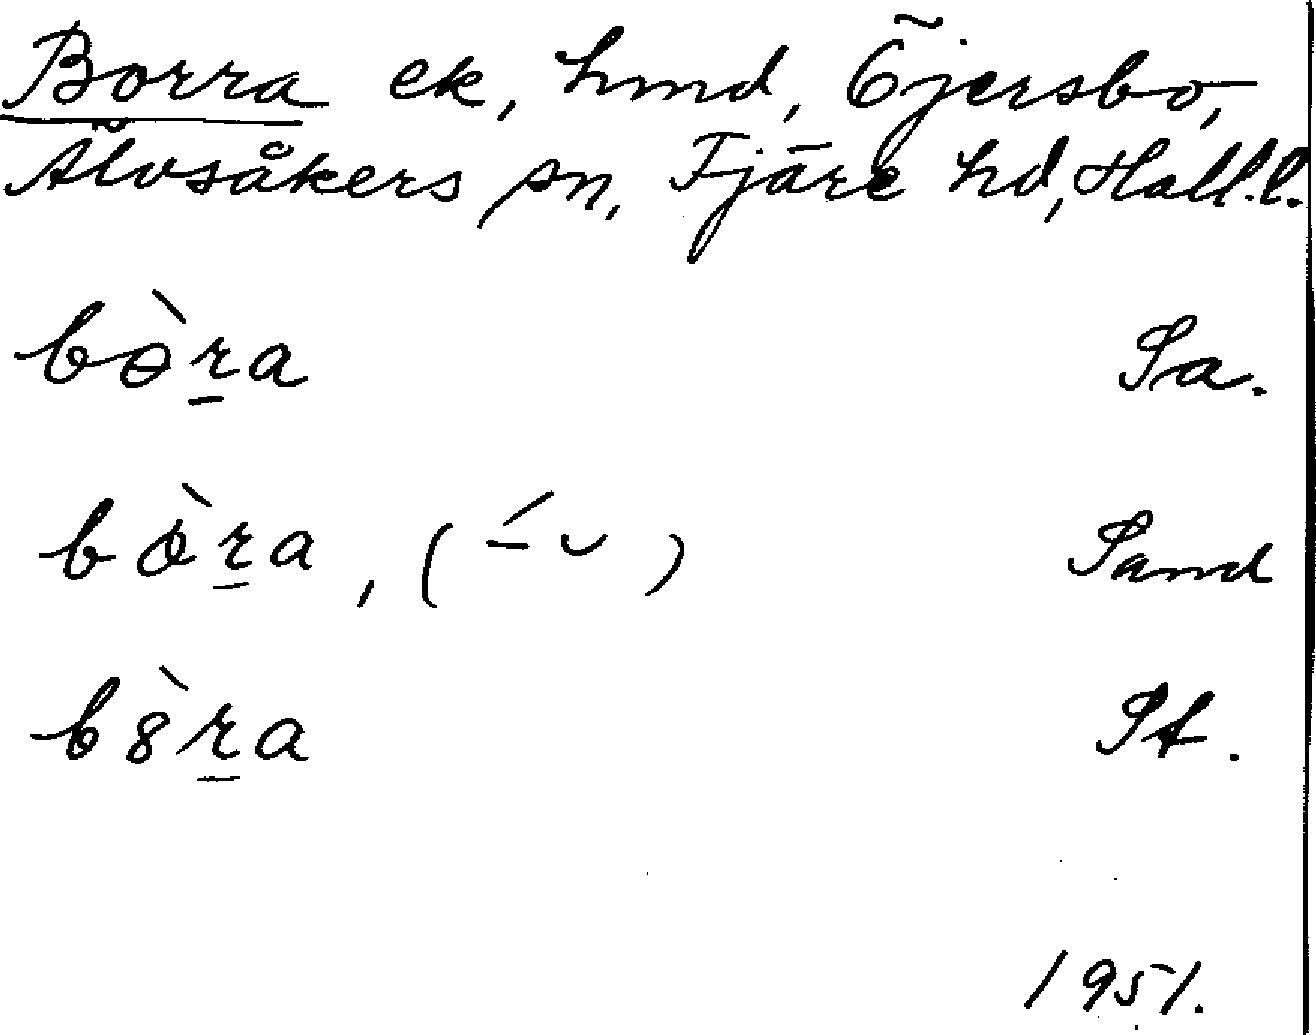 Borra ek, hmd, Öjersbo,
Älvsåkers sn, Fjäre hd, Hall.l.
bò̱ra Sa.
bòṟa, (–́ ⏑) Sand
b8̀ṟa St.
1951.